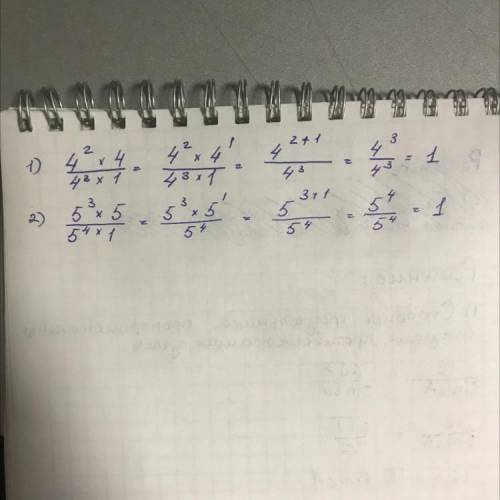 1) (4² × 4)/(4³ × 1) = (4² × 4¹)/(4³ × 1) = 4²⁺¹/4³ = 4³/4³ = 1
2) (5³ × 5)/(5⁴ × 1) = (5³ × 5¹)/5⁴ = 5³⁺¹/5⁴ = 5⁴/5⁴ = 1